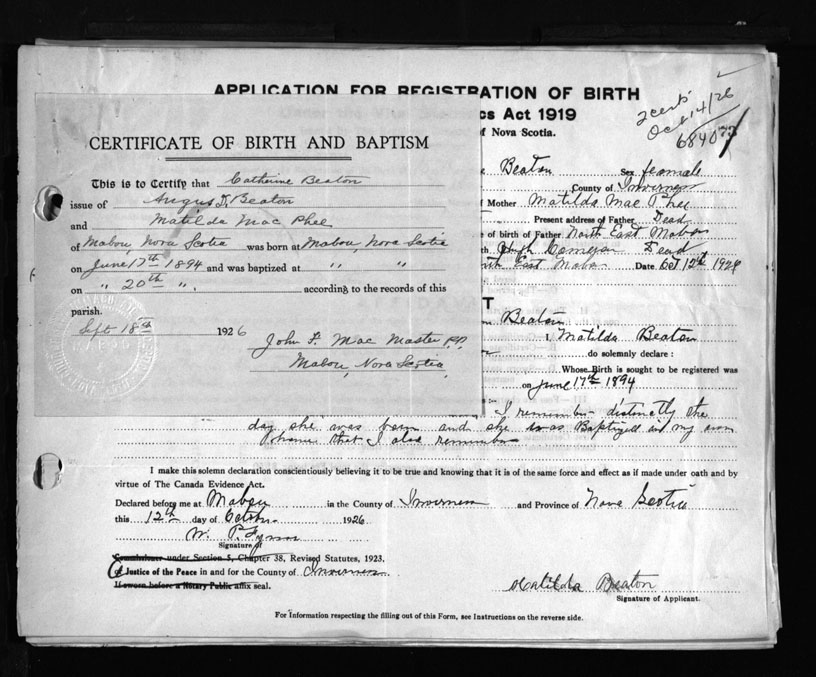 APPLICATION FOR REGISTRATION OF BIRTH
cs Act 1919
of Nova Scotia.
2 certs
Oct 14/26
68407
CERTIFICATE OF BIRTH AND BAPTISM
This is to Certify that Catherine Beaton
issue of Angus D. Beaton
and Matilda Mac Phee
of Mabou, Nova Scotia was born at Mabou, Nova Scotia
on June 17th 1894 and was baptized at " "
on " 20th ". according to the records of this
parish.
Sept 18th 1926
John F. Mac Master P.P.
Mabou, Nova Scotia
Beaton Sex female
County of Inverness
Mother Matilda Mac Phee
Present address of Father Dead
e of birth of Father North East Mabou
Dead
North East Mabou Date Oct 12th 1926
T
Beaton
I, Matilda Beaton
do solemnly declare:
Whose Birth is sought to be registered was
on June 17th 1894
I remember distinctly the
day she was born and she was Baptized in my own
home that I also remember
I make this solemn declaration conscientiously believing it to be true and knowing that it is of the same force and effect as if made under oath and by
virtue of The Canada Evidence Act.
Declared before me at Mabou in the County of Inverness and Province of Nova Scotia
this 12th day of October 1926
W. P.
Signature of
Commissioner under Section 5, Chapter 38, Revised Statutes, 1923.
A Justice of the Peace in and for the County of Inverness
If sworn before a Notary Public affix seal.
Matilda Beaton
Signature of Applicant.
For Information respecting the filling out of this Form, see Instructions on the reverse side.